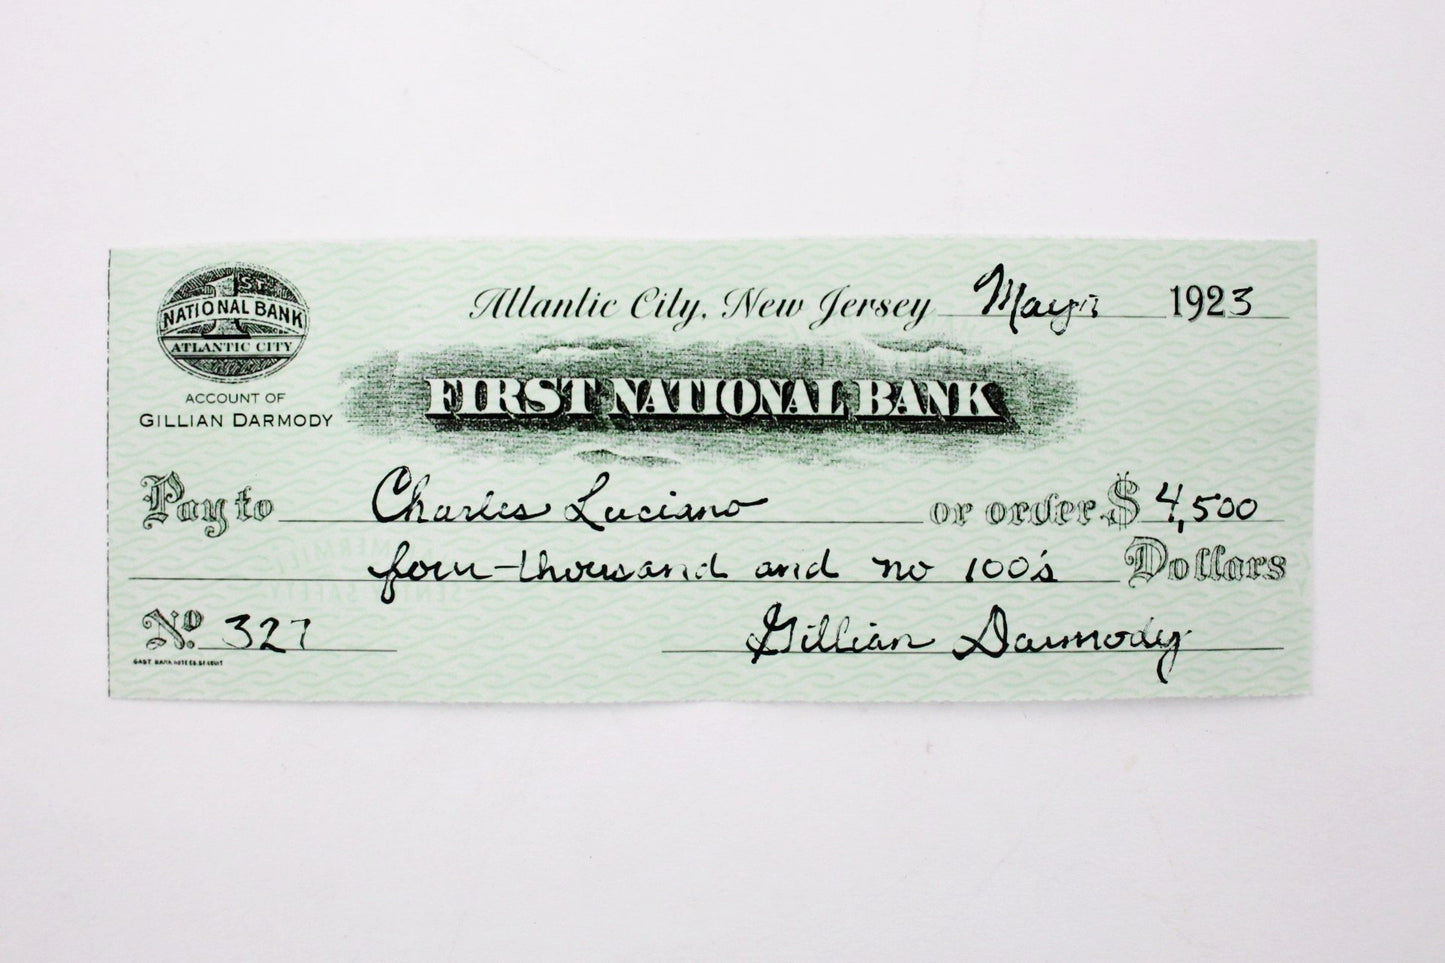 1ST
NATIONAL BANK
ATLANTIC CITY
ACCOUNT OF
GILLIAN DARMODY
Atlantic City, New Jersey May 1923
FIRST NATIONAL BANK
Pay to Charles Luciano or order $ 4,500
four-thousand and no 100's Dollars
No. 327 Gillian Darmody